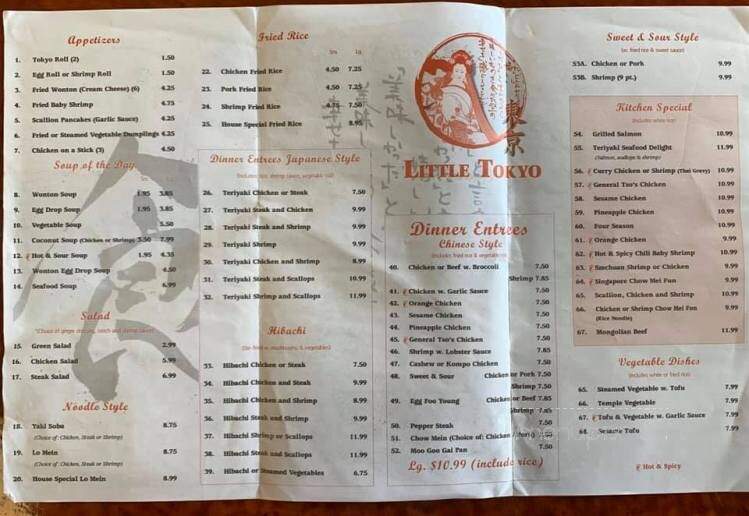 Appetizers
1. Tokyo Roll (2) 1.50
2. Egg Roll or Shrimp Roll 1.50
3. Fried Wonton (Cream Cheese) (6) 4.25
4. Fried Baby Shrimp 4.75
5. Scallion Pancakes (Garlic Sauce) 4.25
6. Fried or Steamed Vegetable Dumplings 4.25
7. Chicken on a Stick (3) 4.50
Soup of the Day
8. Wonton Soup 1.95 3.85
9. Egg Drop Soup 1.95 3.85
10. Vegetable Soup 5.50
11. Coconut Soup (Chicken or Shrimp) 3.50 7.99
12. Hot & Sour Soup 1.95 4.35
13. Wonton Egg Drop Soup 4.50
14. Seafood Soup 6.99
Salad
15. Green Salad 2.99
16. Chicken Salad 5.99
17. Steak Salad 6.99
Noodle Style
18. Yaki Soba 8.75
(Choice of: Chicken, Steak or Shrimp)
19. Lo Mein 8.75
(Choice of: Chicken, Steak or Shrimp)
20. House Special Lo Mein 8.99
Fried Rice
Sm Lg
22. Chicken Fried Rice 4.50 7.25
23. Pork Fried Rice 4.50 7.25
24. Shrimp Fried Rice 4.75 7.50
25. House Special Fried Rice 8.95
Dinner Entrees Japanese Style
26. Teriyaki Chicken or Steak 7.50
27. Teriyaki Steak and Chicken 9.99
28. Teriyaki Steak and Shrimp 9.99
29. Teriyaki Shrimp 9.99
30. Teriyaki Chicken and Shrimp 8.99
31. Teriyaki Steak and Scallops 10.99
32. Teriyaki Shrimp and Scallops 11.99
Hibachi
33. Hibachi Chicken or Steak 7.50
34. Hibachi Chicken and Steak 9.99
35. Hibachi Chicken and Shrimp 8.99
36. Hibachi Steak and Shrimp 9.99
37. Hibachi Shrimp or Scallops 11.99
38. Hibachi Steak and Scallops 11.99
39. Hibachi or Steamed Vegetables 6.75
東京
LITTLE TOKYO
Dinner Entrees
Chinese Style
(includes fried rice & vegetables)
40. Chicken or Beef w. Broccoli 7.50
Shrimp 7.85
41. Chicken w. Garlic Sauce 7.50
42. Orange Chicken 7.50
43. Sesame Chicken 7.50
44. Pineapple Chicken 7.50
45. General Tso's Chicken 7.50
46. Shrimp w. Lobster Sauce 7.85
47. Cashew or Konpo Chicken 7.50
48. Sweet & Sour Chicken or Pork 7.50
Shrimp 7.50
49. Egg Foo Young Chicken or Beef 7.85
Shrimp 7.85
50. Pepper Steak 7.50
51. Chow Mein (Choice of: Chicken 7.50
52. Moo Goo Gai Pan 7.50
Lg. $10.99 (include rice)
Sweet & Sour Style
(w. fried rice & sweet sauce)
53A. Chicken or Pork 9.99
53B. Shrimp (9 pt.) 9.99
Kitchen Special
(includes white rice)
54. Grilled Salmon 10.99
55. Teriyaki Seafood Delight 11.99
(Salmon, scallops & shrimp)
56. Curry Chicken or Shrimp (Thai Gravy) 10.99
57. General Tso's Chicken 10.99
58. Sesame Chicken 10.99
59. Pineapple Chicken 10.99
60. Four Season 10.99
61. Orange Chicken 10.99
62. Hot & Spicy Chili Baby Shrimp 10.99
63. Szechuan Shrimp or Chicken 10.99
64. Singapore Chow Mei Fun 9.99
65. Scallion, Chicken and Shrimp 10.99
66. Chicken or Shrimp Chow Mei Fun 10.99
(Rice Noodle)
67. Mongolian Beef 11.99
Vegetable Dishes
(includes white or fried rice)
65. Steamed Vegetable w. Tofu 7.99
66. Temple Vegetable 7.99
67. Tofu & Vegetable w. Garlic Sauce 7.99
68. Sesame Tofu 7.99
Hot & Spicy